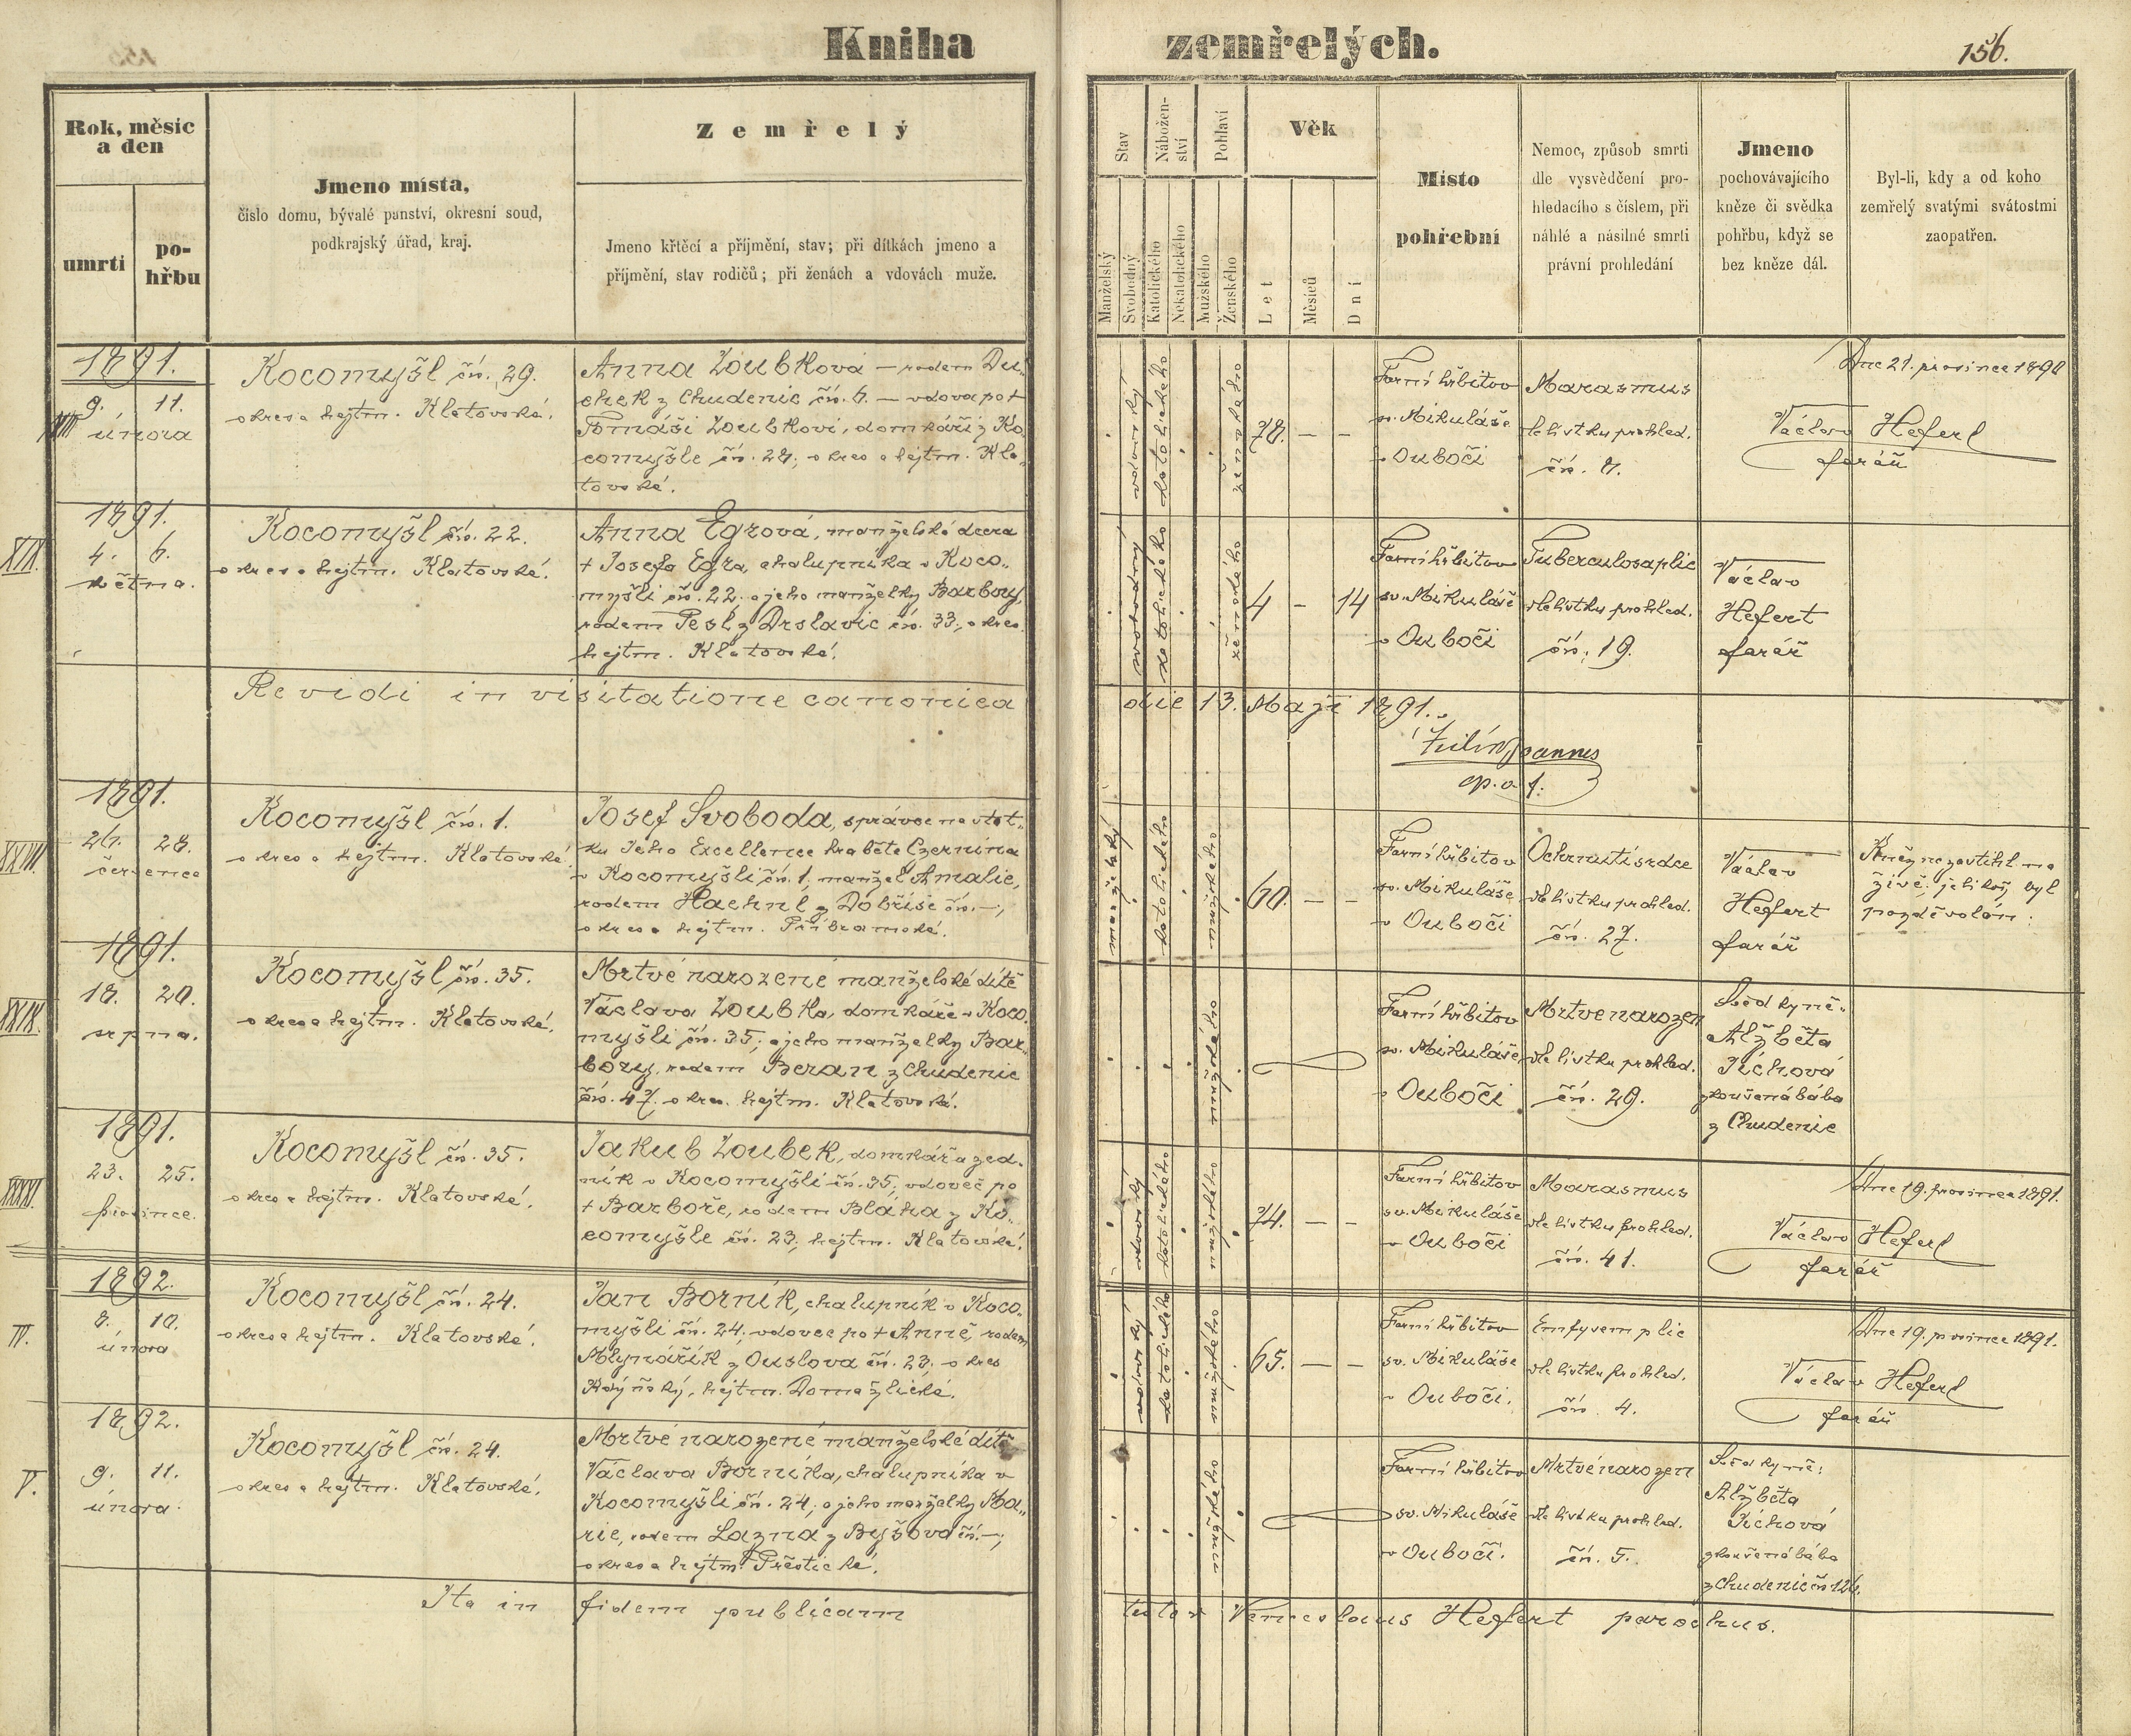 Kniha zemřelých.
156.
Rok, měsíc
a den
umrtí
po-
hřbu
Jmeno místa,
číslo domu, bývalé panství, okresní soud,
podkrajský úřad, kraj.
Zemřelý
Jmeno křtěcí a příjmění, stav; při dítkách jmeno a
příjmění, stav rodičů; při ženách a vdovách muže.
Stav
Manželský
Svobodný
Nábožen-
ství
Katolického
Nekatolického
Pohlaví
Mužského
Ženského
Věk
Let
Měsíců
Dní
Místo
pohřební
Nemoc, způsob smrti
dle vysvědčení pro-
hledacího s číslem, při
náhlé a násilné smrti
právní prohledání
Jmeno
pochovávajícího
kněze či svědka
pohřbu, když se
bez kněze dál.
Byl-li, kdy a od koho
zemřelý svatými svátostmi
zaopatřen.
1891.
9. 11.
února
Kocomyšl čís. 29.
okres a hejtm. Klatovské.
Anna Zoubková – rodem Du-
chek z Chudenic čís. 6. – vdova po †
Tomáši Zoubkovi, domkáři z Ko-
comyšle čís. 28, okres a hejtm. Kla-
tovské.
vdovský
katolického
ženského
78. – –
Farní hřbitov
sv. Mikuláše
v Ouboči
Marasmus
dle lístku prohled.
čís. 8.
Dne 21. prosince 1890
Václav Hefert
farář
XIX.
1891.
4. 6.
května.
Kocomyšl čís. 22.
okres a hejtm. Klatovské.
Anna Egrová, manželská dcera
† Josefa Egra, chalupníka v Koco-
myšli čís. 22. a jeho manželky Barbory,
rodem Pešl z Drslavic čís. 33., okres.
hejtm. Klatovské.
svobodný
katolického
ženského
4 – 14
Farní hřbitov
sv. Mikuláše
v Ouboči
Tuberculosa plic
dle lístku prohled.
čís. 19.
Václav
Hefert
farář
Revidi in visitatione canonica die 13. Maji 1891.
Joannes
XXVII.
1891.
26. 28.
července
Kocomyšl čís. 1.
okres a hejtm. Klatovské.
Josef Svoboda, správce na stat-
ku Jeho Excellence hraběte Czernína
v Kocomyšli čís. 1, manžel Amalie,
rodem Haehnl z Dobříše čís. –,
okres a hejtm. Příbramské.
manželský
katolického
mužského
60. – –
Farní hřbitov
sv. Mikuláše
v Ouboči
Ochrnutí srdce
dle lístku prohled.
čís. 27.
Václav
Hefert
farář
Kněz nezastihl na
živě, jelikož byl
pozdě volán.
XXIX.
1891.
18. 20.
srpna.
Kocomyšl čís. 35.
okres a hejtm. Klatovské.
Mrtvě narozené manželské dítě
Václava Zoubka, domkáře v Koco-
myšli čís. 35; a jeho manželky Bar-
bory, rodem Beran z Chudenic
čís. 47. okres. hejtm. Klatovské.
mužského
Farní hřbitov
sv. Mikuláše
v Ouboči
Mrtvě narozen
dle lístku prohled.
čís. 29.
Svědkyně:
Alžběta
Tichová
zkoušená bába
z Chudenic
1891.
23. 25.
prosince.
Kocomyšl čís. 35.
okres a hejtm. Klatovské.
Jakub Zoubek, domkář a zed-
ník v Kocomyšli čís. 35, vdovec po
† Barboře, rodem Bláha z Ko-
comyšle čís. 23, hejtm. Klatovské.
vdovský
katolického
mužského
74. – –
Farní hřbitov
sv. Mikuláše
v Ouboči
Marasmus
dle lístku prohled.
čís. 41.
Dne 19. prosince 1891.
Václav Hefert
farář
IV.
1892.
8. 10.
února
Kocomyšl čís. 24.
okres a hejtm. Klatovské.
Jan Borník, chalupník v Koco-
myšli čís. 24, vdovec po † Anně, rodem
Mlynářík z Ouslova čís. 23. okres
Kdýňský, hejtm. Domažlické.
vdovský
katolického
mužského
65. – –
Farní hřbitov
sv. Mikuláše
v Ouboči.
Emfysem plic
dle lístku prohled.
čís. 4.
Dne 19. prosince 1891.
Václav Hefert
farář
V.
1892.
9. 11.
února
Kocomyšl čís. 24.
okres a hejtm. Klatovské.
Mrtvě narozené manželské dítě
Václava Borníka, chalupníka v
Kocomyšli čís. 24; a jeho manželky Ma-
rie, rodem Lazna z Byšova čís. –;
okres a hejtm. Přeštické.
mužského
Farní hřbitov
sv. Mikuláše
v Ouboči.
Mrtvě narozen
dle lístku prohled.
čís. 5.
Svědkyně:
Alžběta
Tichová
zkoušená bába
z Chudenic čís 126.
Ita in fidem publicam testor Venceslaus Hefert parochus.